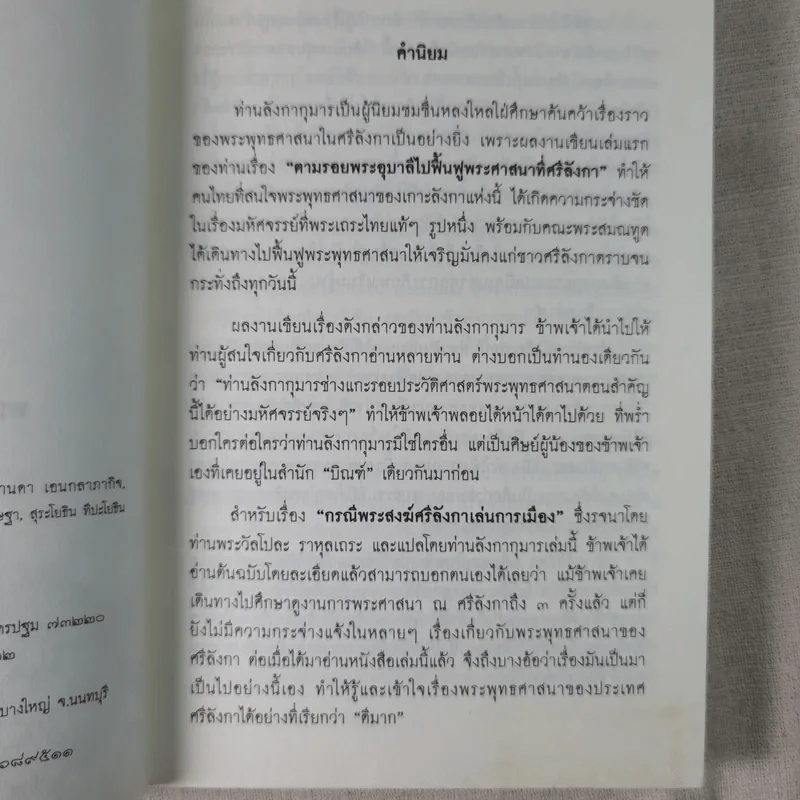 คำนิยม
ท่านลังกากุมารเป็นผู้นิยมชมชื่นหลงใหลใฝ่ศึกษาค้นคว้าเรื่องราว
ของพระพุทธศาสนาในศรีลังกาเป็นอย่างยิ่ง เพราะผลงานเขียนเล่มแรก
ของท่านเรื่อง “ตามรอยพระอุบาลีไปฟื้นฟูพระศาสนาที่ศรีลังกา” ทำให้
คนไทยที่สนใจพระพุทธศาสนาของเกาะลังกาแห่งนี้ ได้เกิดความกระจ่างชัด
ในเรื่องมหัศจรรย์ที่พระเถระไทยแท้ๆ รูปหนึ่ง พร้อมกับคณะพระสมณทูต
ได้เดินทางไปฟื้นฟูพระพุทธศาสนาให้เจริญมั่นคงแก่ชาวศรีลังกาตราบจน
กระทั่งถึงทุกวันนี้
ผลงานเขียนเรื่องดังกล่าวของท่านลังกากุมาร ข้าพเจ้าได้นำไปให้
ท่านผู้สนใจเกี่ยวกับศรีลังกาอ่านหลายท่าน ต่างบอกเป็นทำนองเดียวกัน
ว่า “ท่านลังกากุมารช่างแกะรอยประวัติศาสตร์พระพุทธศาสนาตอนสำคัญ
นี้ได้อย่างมหัศจรรย์จริงๆ” ทำให้ข้าพเจ้าพลอยได้หน้าได้ตาไปด้วย ที่พร่ำ
บอกใครต่อใครว่าท่านลังกากุมารมิใช่ใครอื่น แต่เป็นศิษย์ผู้น้องของข้าพเจ้า
เองที่เคยอยู่ในสำนัก “บิณฑ์” เดียวกันมาก่อน
สำหรับเรื่อง “กรณีพระสงฆ์ศรีลังกาเล่นการเมือง” ซึ่งรจนาโดย
ท่านพระวัลโปละ ราหุลเถระ และแปลโดยท่านลังกากุมารเล่มนี้ ข้าพเจ้าได้
อ่านต้นฉบับโดยละเอียดแล้วสามารถบอกตนเองได้เลยว่า แม้ข้าพเจ้าเคย
เดินทางไปศึกษาดูงานการพระศาสนา ณ ศรีลังกาถึง ๓ ครั้งแล้ว แต่ก็
ยังไม่มีความกระจ่างแจ้งในหลายๆ เรื่องเกี่ยวกับพระพุทธศาสนาของ
ศรีลังกา ต่อเมื่อได้มาอ่านหนังสือเล่มนี้แล้ว จึงถึงบางอ้อว่าเรื่องมันเป็นมา
เป็นไปอย่างนี้เอง ทำให้รู้และเข้าใจเรื่องพระพุทธศาสนาของประเทศ
ศรีลังกาได้อย่างที่เรียกว่า “ดีมาก”
านดา เอนกลาภากิจ,
ษฐา, สุระโยธิน ทีปะโยธิน
ครปฐม ๗๓๒๒๐
๒
บางใหญ่ จ.นนทบุรี
๖๘๙๕๑๑